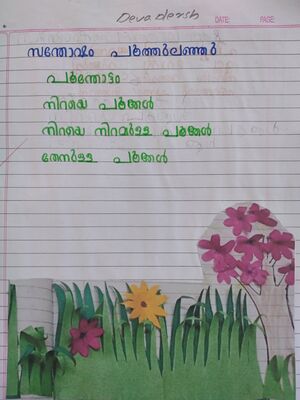 Devadersh
DATE: PAGE:
സന്തോഷം പൂത്തുലഞ്ഞു
പൂന്തോട്ടം
നിറയെ പൂക്കൾ
നിറയെ നിറമുള്ള പൂക്കൾ
തേനുള്ള പൂക്കൾ